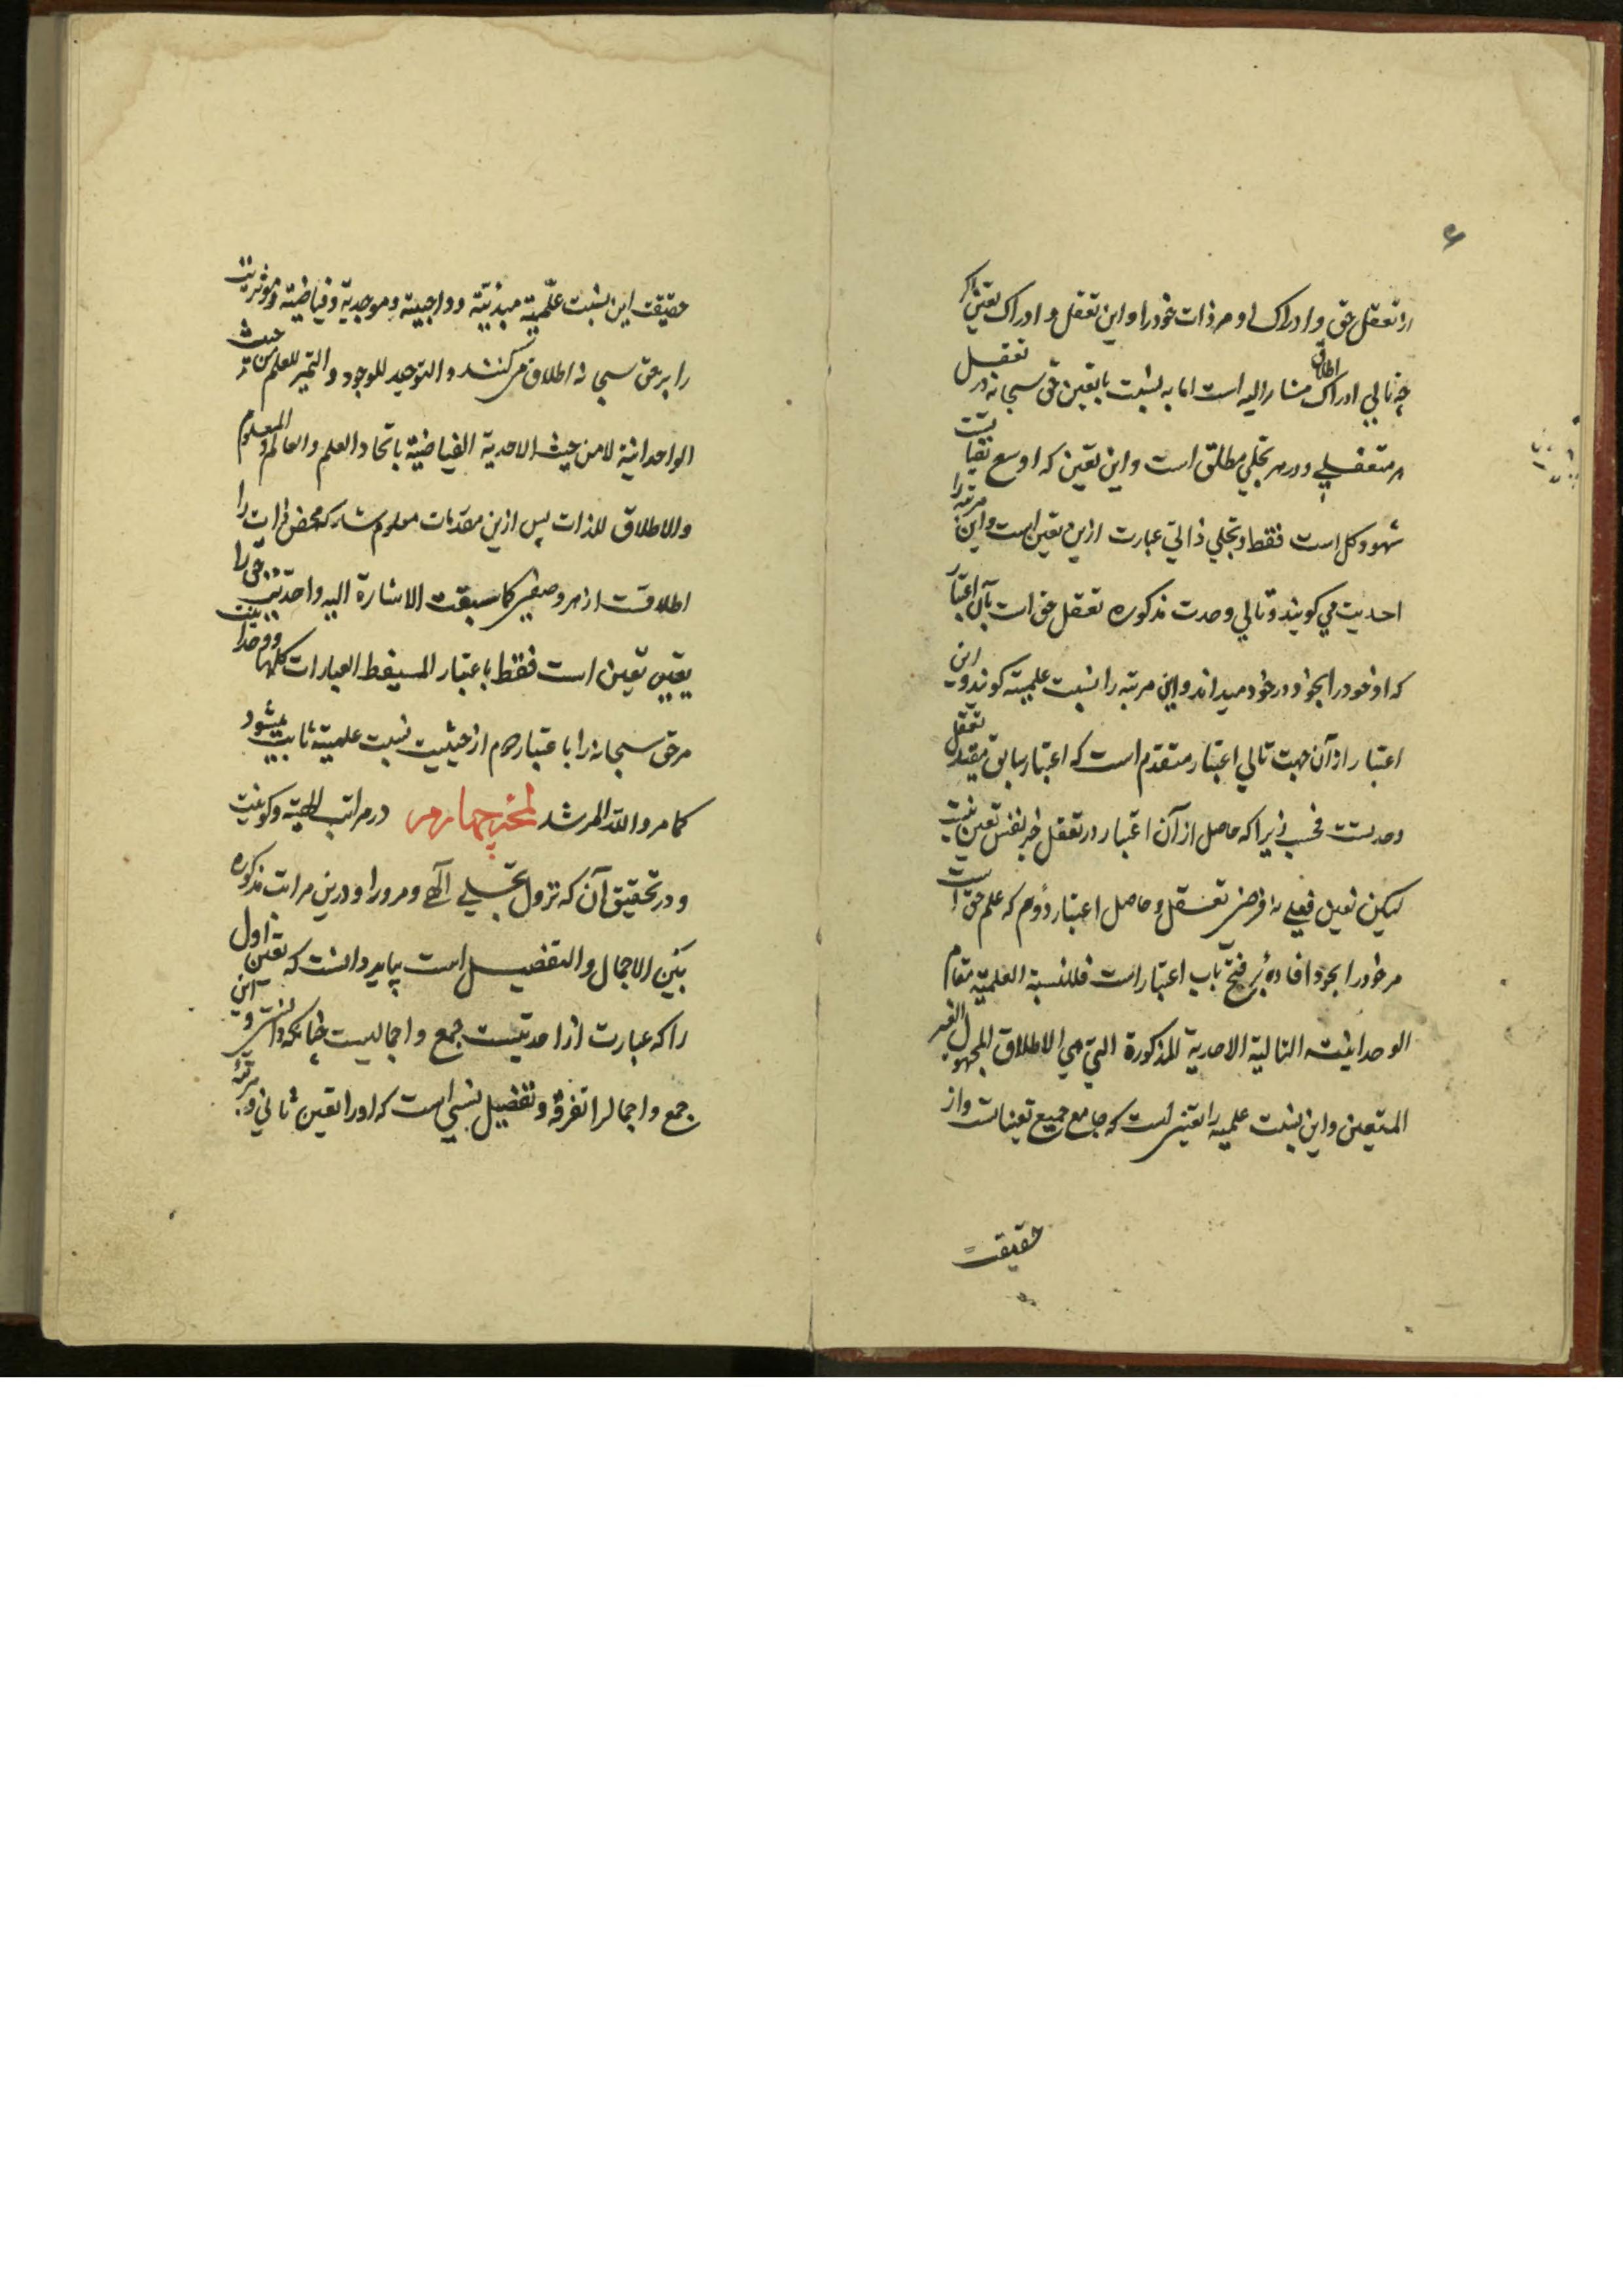 ۶
از تعقل حق و ادراک او مر ذات خود را و این تعقل و ادراک تعینی
چه تالی ادراک اطلاق مشار الیه است اما به نسبت با تعین حق سبحانه در تعقل
هر متعقلی و در هر تجلی مطلق است و این تعین که اوسع تعینات
شهود کل است فقط و تجلی ذاتی عبارت ازین تعین است و این مرتبه را
احدیت می کویند و تالی وحدت مذکوره تعقل حق است بآن اعتبار
که او خود را بخود در خود میداند و این مرتبه را نسبت علمیته کوندو این
اعتبار از آن جهت تالی اعتبار متقدم است که اعتبار سابق مقید تعقل
وحدت فحسب زیرا که حاصل از آن اعتبار در تعقل غیر نفس تعین نیست
لیکن تعین فعلی نه فرضی تعقل و حاصل اعتبار دوم که علم حق است
مر خود را بخود افاده فتح باب اعتبار است فللنسبة العلمیة مقام
الوحدانیته التالیة الاحدیة المذکورة التی هی الاطلاق المجهول الغیر
المتعین و این نسبت علمیه را تعینی است که جامع جمیع تعینات و از
حقیقت
حقیقت این نسبت علمیته مبدئیته و واجبیته و موجدیة و فیاضیته و موثریت
را بر حق سبحانه اطلاق می کنند و التوحید للوجود و التمیز للعلم من حیث
الواحدانیة لا من حیث الاحدیة الفیاضیته باتحاد العلم و العالم و المعلوم
و الاطلاق للذات پس ازین مقدمات معلوم شد که محض ذات را
اطلاقست از هر وصفی کما سبقت الاشارة الیه و احدیت حق را
تعین است فقط با عتبار المسقط العبارات کلها و وحدانیت
مر حق سبحانه را با عتبار دوم از حیثیت نسبت علمیته ثابت میشود
کما مر و اللّه المرشد لمخه چهارم در مراتب الهیته و کونیت
و در تحقیق آن که نزول تجلی آلهی و مرور او درین مراتب مذکوره
بین الاجمال و التفصیل است بباید دانست که تعین اول
را که عبارت از احدیتست جمع و اجمالیست چنانکه دانستی و این
جمع و اجمال را تفرقه و تفضیل نسبی است که او را تعین ثانی و مرتبهٔ